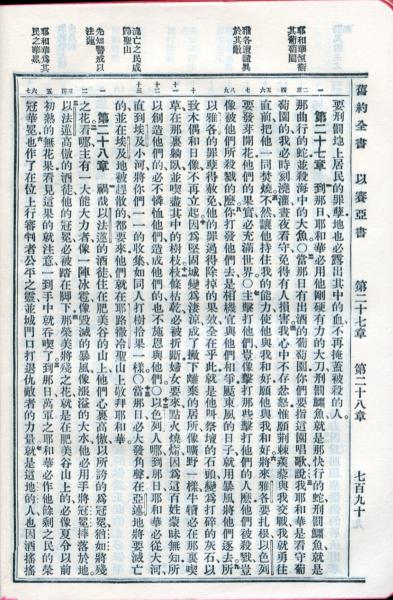 舊約全書 以賽亞書 第二十七章 第二十八章 七百九十
耶和華恆衛其葡萄園
雅各遭譴異於其敵
流亡之民咸歸聖山
先知警戒以法蓮
耶和華爲其民之華冕
要刑罰地上居民的罪孽地也必露出其中的血不再掩蓋被殺的人
第二十七章 到那日耶和華必用他剛硬有力的大刀刑罰鱷魚就是那快行的蛇刑罰鱷魚就是
那曲行的蛇並殺海中的大魚○當那日有出酒的葡萄園你們要指這園唱歌說我耶和華是看守葡
萄園的我必時刻澆灌晝夜看守免得有人損害我心中不存忿怒惟願荊棘蒺藜與我交戰我就勇往
直前把他一同焚燒不然讓他持住我的能力使他與我和好願他與我和好將來雅各要扎根以色列
要發芽開花他們的果實必充滿世界○主擊打他們豈像擊打那些擊打他們的人麼他們被殺戮豈
像被他們所殺戮的麼你打發他們去是相機宜與他們相爭颳東風的日子就用暴風將他們逐去所
以雅各的罪孽得赦免他的罪過得除掉的果效全在乎此就是他叫祭壇的石頭變爲打碎的灰石以
致木偶和日像不再立起因爲堅固城變爲淒涼成了撇下離棄的居所像曠野一樣牛犢必在那裏喫
草在那裏躺臥並喫盡其中的樹枝枝條枯乾必被折斷婦女要來點火燒着因爲這百姓蒙昧無知所
以創造他們的必不憐恤他們造成他們的也不施恩與他們○以色列人哪到那日耶和華必從大河
直到埃及小河將你們一一的收集如同人打樹拾果一樣○當那日必大發角聲在亞述地將要滅亡
的並在埃及地被趕散的都要來他們就在耶路撒冷聖山上敬拜耶和華
第二十八章 禍哉以法蓮的酒徒住在肥美谷的山上他們心裏高傲以所誇的爲冠冕猶如將殘
之花看哪主有一大能大力者像一陣冰雹像毀滅的暴風像漲溢的大水他必用手將冠冕摔落於地
以法蓮高傲的酒徒他的冠冕必被踏在腳下那榮美將殘之花就是在肥美谷山上的必像夏令以前
初熟的無花果看見這果的就注意一到手中就吞喫了到那日萬軍之耶和華必作他餘剩之民的榮
冠華冕也作了在位上行審判者公平之靈並城門口打退仇敵者的力量就是這地的人也因酒搖搖